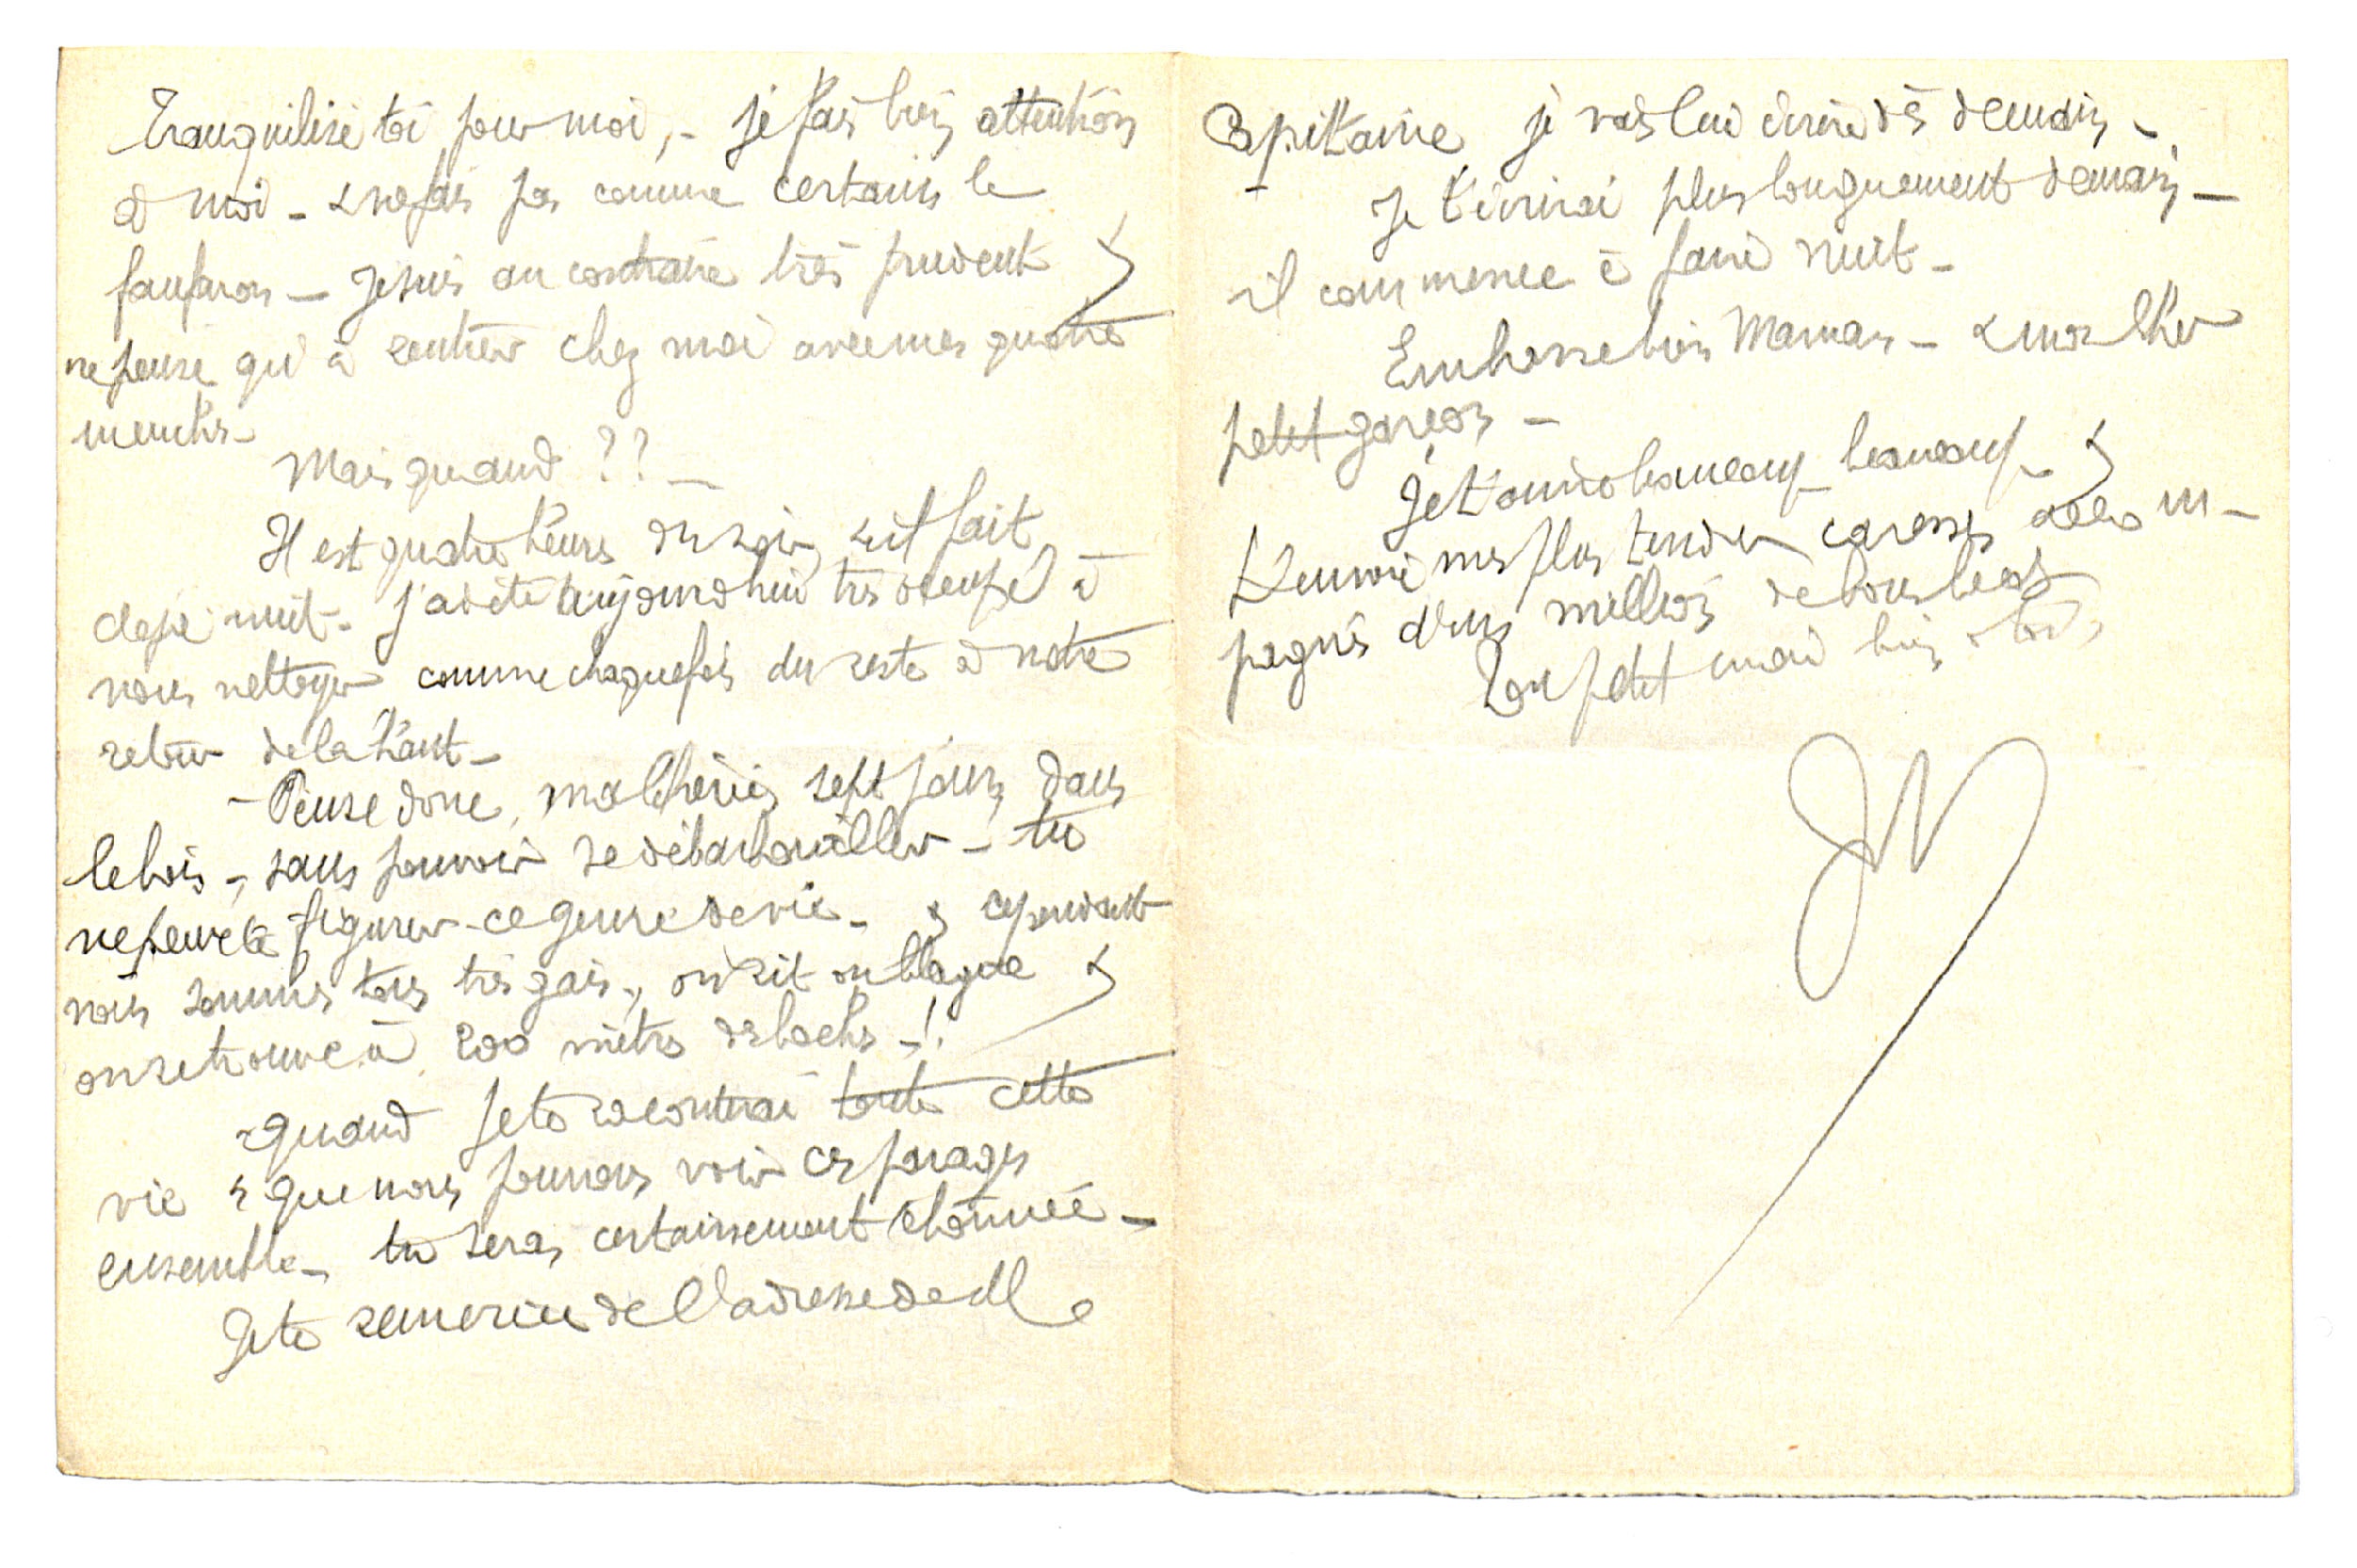 Tranquilise toi pour moi, - je fais bien attention
à moi - & ne fais pas comme certains le
fanfaron - Je suis au contraire très prudent &
ne pense qu'à rentrer chez moi avec mes quatre
membres -
Mais quand ?? -
Il est quatre heures du soir, & il fait
déjà nuit - j'ai été aujourd'hui très occupé à
nous nettoyer comme chaque fois du reste à notre
retour de là haut -
- Pense donc, ma chérie, sept jours dans
le bois -, sans pouvoir se débarbouiller - tu
ne peux te figurer ce genre de vie - & cependant
nous sommes tous très gais, on rit on blague &
on se trouve à 200 mètres des boches - !
- quand je te raconterai toute cette
vie & que nous pourrons voir ces parages
ensemble - tu seras certainement étonnée -
Je te remercie de l'adresse de M
Capitaine je vais lui écrire dès demain -
Je t'écrirai plus longuement demain -
il commence à faire nuit -
Embrasse bien Maman - & mon cher
petit garçon -
Je t'aime beaucoup beaucoup &
t'envoie mes plus tendres caresses accom-
pagnés d'un million de bons becots
Ton petit mari bien à toi,
JM